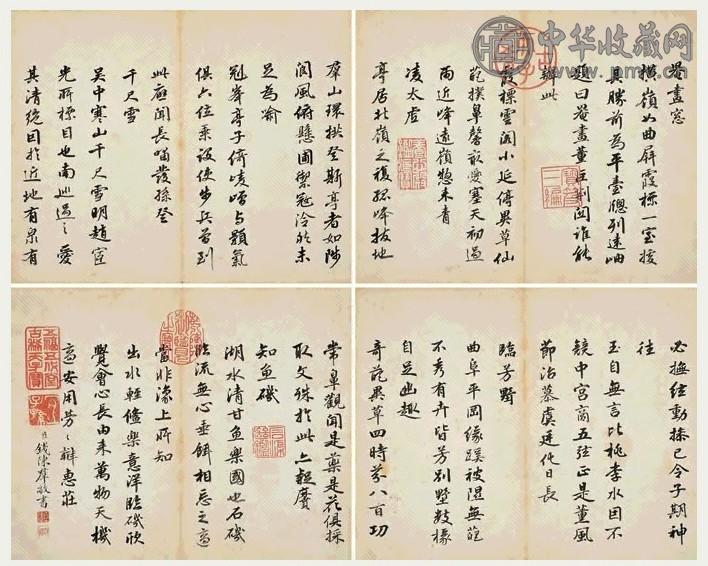 中华收藏网
罨畫窓
橫嶺如曲屏霞標一室接
其勝前為平臺牕列遠岫
題曰罨畫董巨荊關誰能
辦此
霞標雲閣小延異草仙
葩撲鼻馨最愛塞天初過
雨近峰遠嶺揔来青
凌太虛
亭居北嶺之複孤峰拔地
羣山環拱登斯亭者如陟
閬風俯懸圃禦冠泠然未
足為喻
冠峯亭子倚崚嶒与顥氣
俱六位乘設使步兵曾到
此應聞長嘯發孫登
千尺雪
吳中寒山千尺雪明趙宦
光所標目也南巡過之愛
其清絕因於近地有泉有
必撫絃動操已令子期神
往
玉自無言比桃李水因不
競中宮商五弦正是薰風
節治慕虞廷化日長
臨芳墅
曲阜平岡緣蹊被隰無葩
不秀有卉皆芳別墅數椽
自足幽趣
奇葩異草四時芬八百功
常鼻觀聞是藥是花俱採
取文殊於此亦疑
知魚磯
湖水清甘魚樂國也石磯
臨流無心垂餌相忘之適
當非濠上所知
出水輕鯈樂意洋臨磯欣
覺會心長由來萬物天機
適安用芳〻辯惠莊
臣錢陳羣敬書